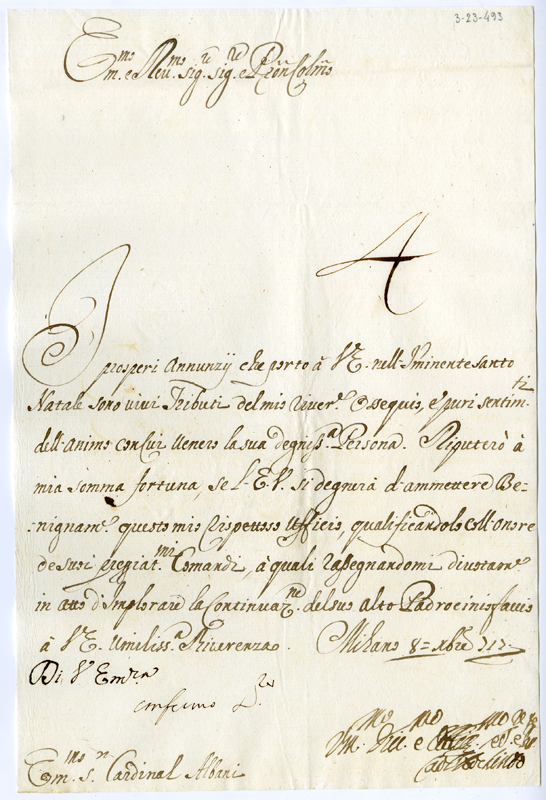 3-23-493
Em.mo e Rev.mo Sig.re Sig.re e Pron Colmo
I prosperi Annunzij che porto à V.E. nell'Iminente santo
Natale sono vivi Tributi del mio river.e Ossequio, e puri sentim.ti
dell'Animo con cui venero la sua degniss.a Persona. Riputerò à
mia somma fortuna, se l'E.V. si degnirà d'ammettere Be-
nignam.e questo mio rispettoso Ufficio, qualificandolo coll'onore
de suoi pregiat.mi Comandi, à quali rassegnandomi divotam.e
in atto d'Implorare la Continuaz.ne del suo alto Padrocinio faccio
à V.E. Umiliss.a Riverenza. Milano 8 = Xbre 717
Di V. Em.za
Em.mo S. Cardinal Albani